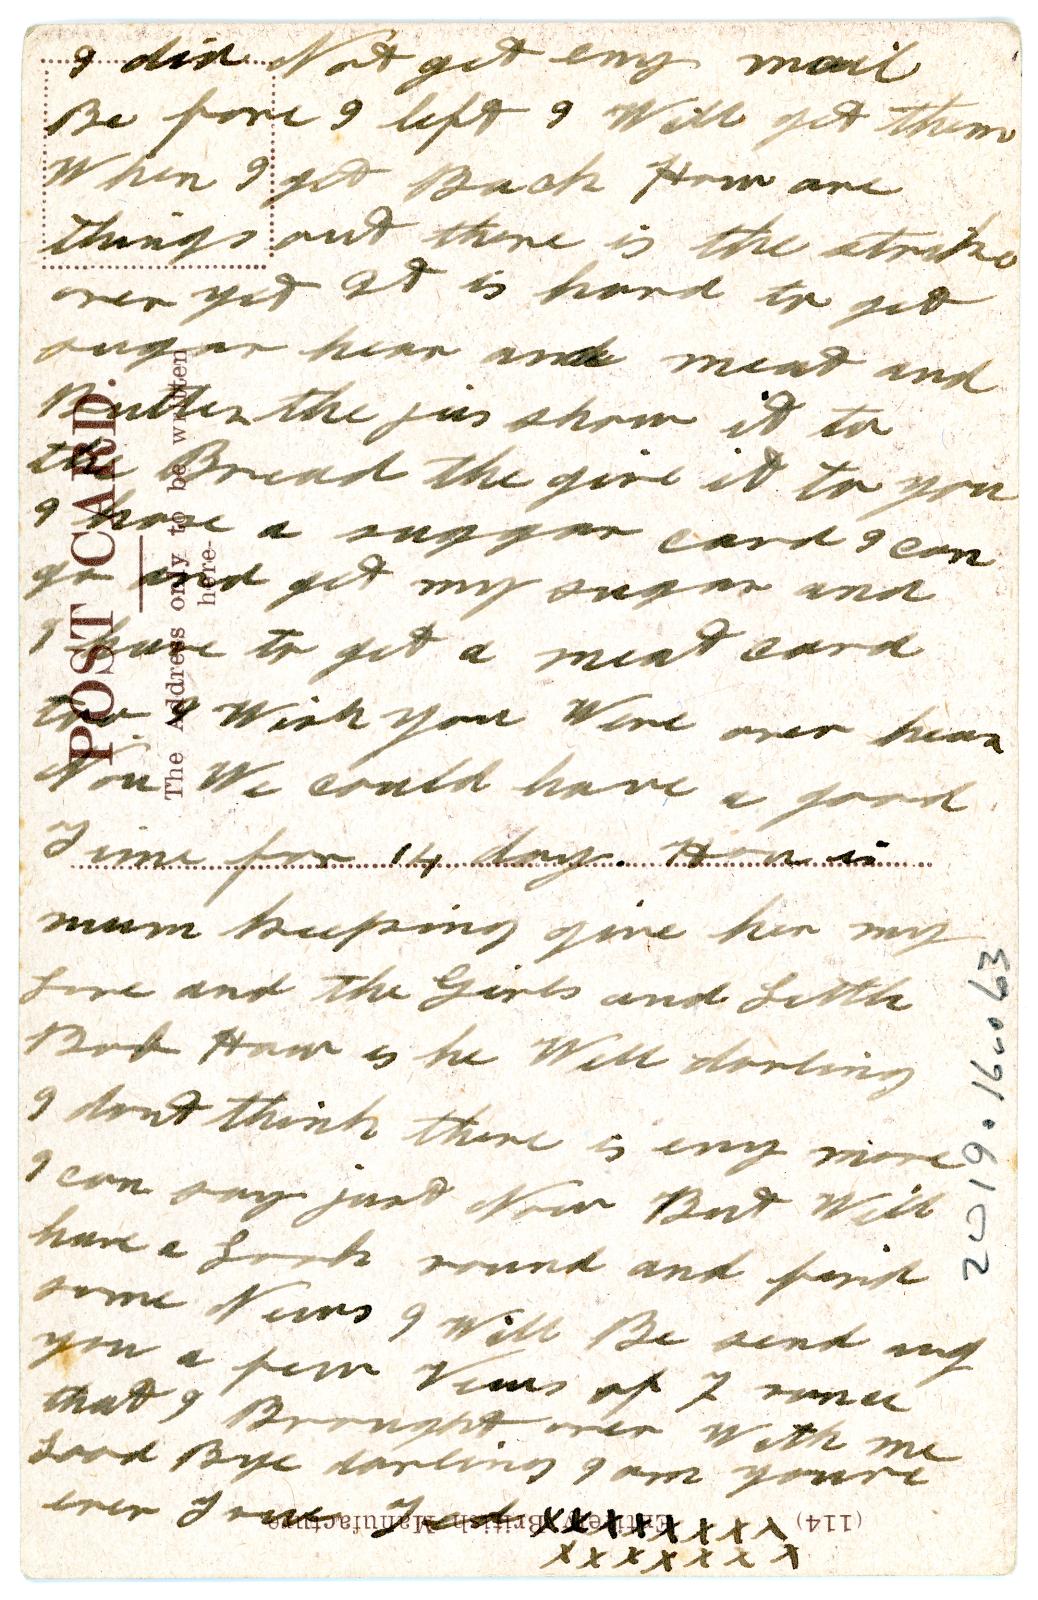 I did Not get eny mail
Be fore I left I Will get them
When I get Back How are
things out there is the strike
over yet It is hard to get
sugar hear and meat and
Butter the jus show it to
the Bread the give it to you
I have a suggar card I can
go and get my sugar and
I have to get a meat card
too I Wish you Were over hear
Now We could have a good
Time for 14 day. How is
mum keeping give her my
Love and the Girls and Little
Bob How is he Well darling
I dont think there is eny more
I can say just Now But Will
have a Look round and find
some News I Will Be send ing
you a few Views of
that I Brought over With me
Good Bye darling I am youre
ever True Ted xxxxxxxx
xxxxxxxx
POST CARD.
The Address only to be written
here
(114) Entirely British Manufacture
2019.16.063